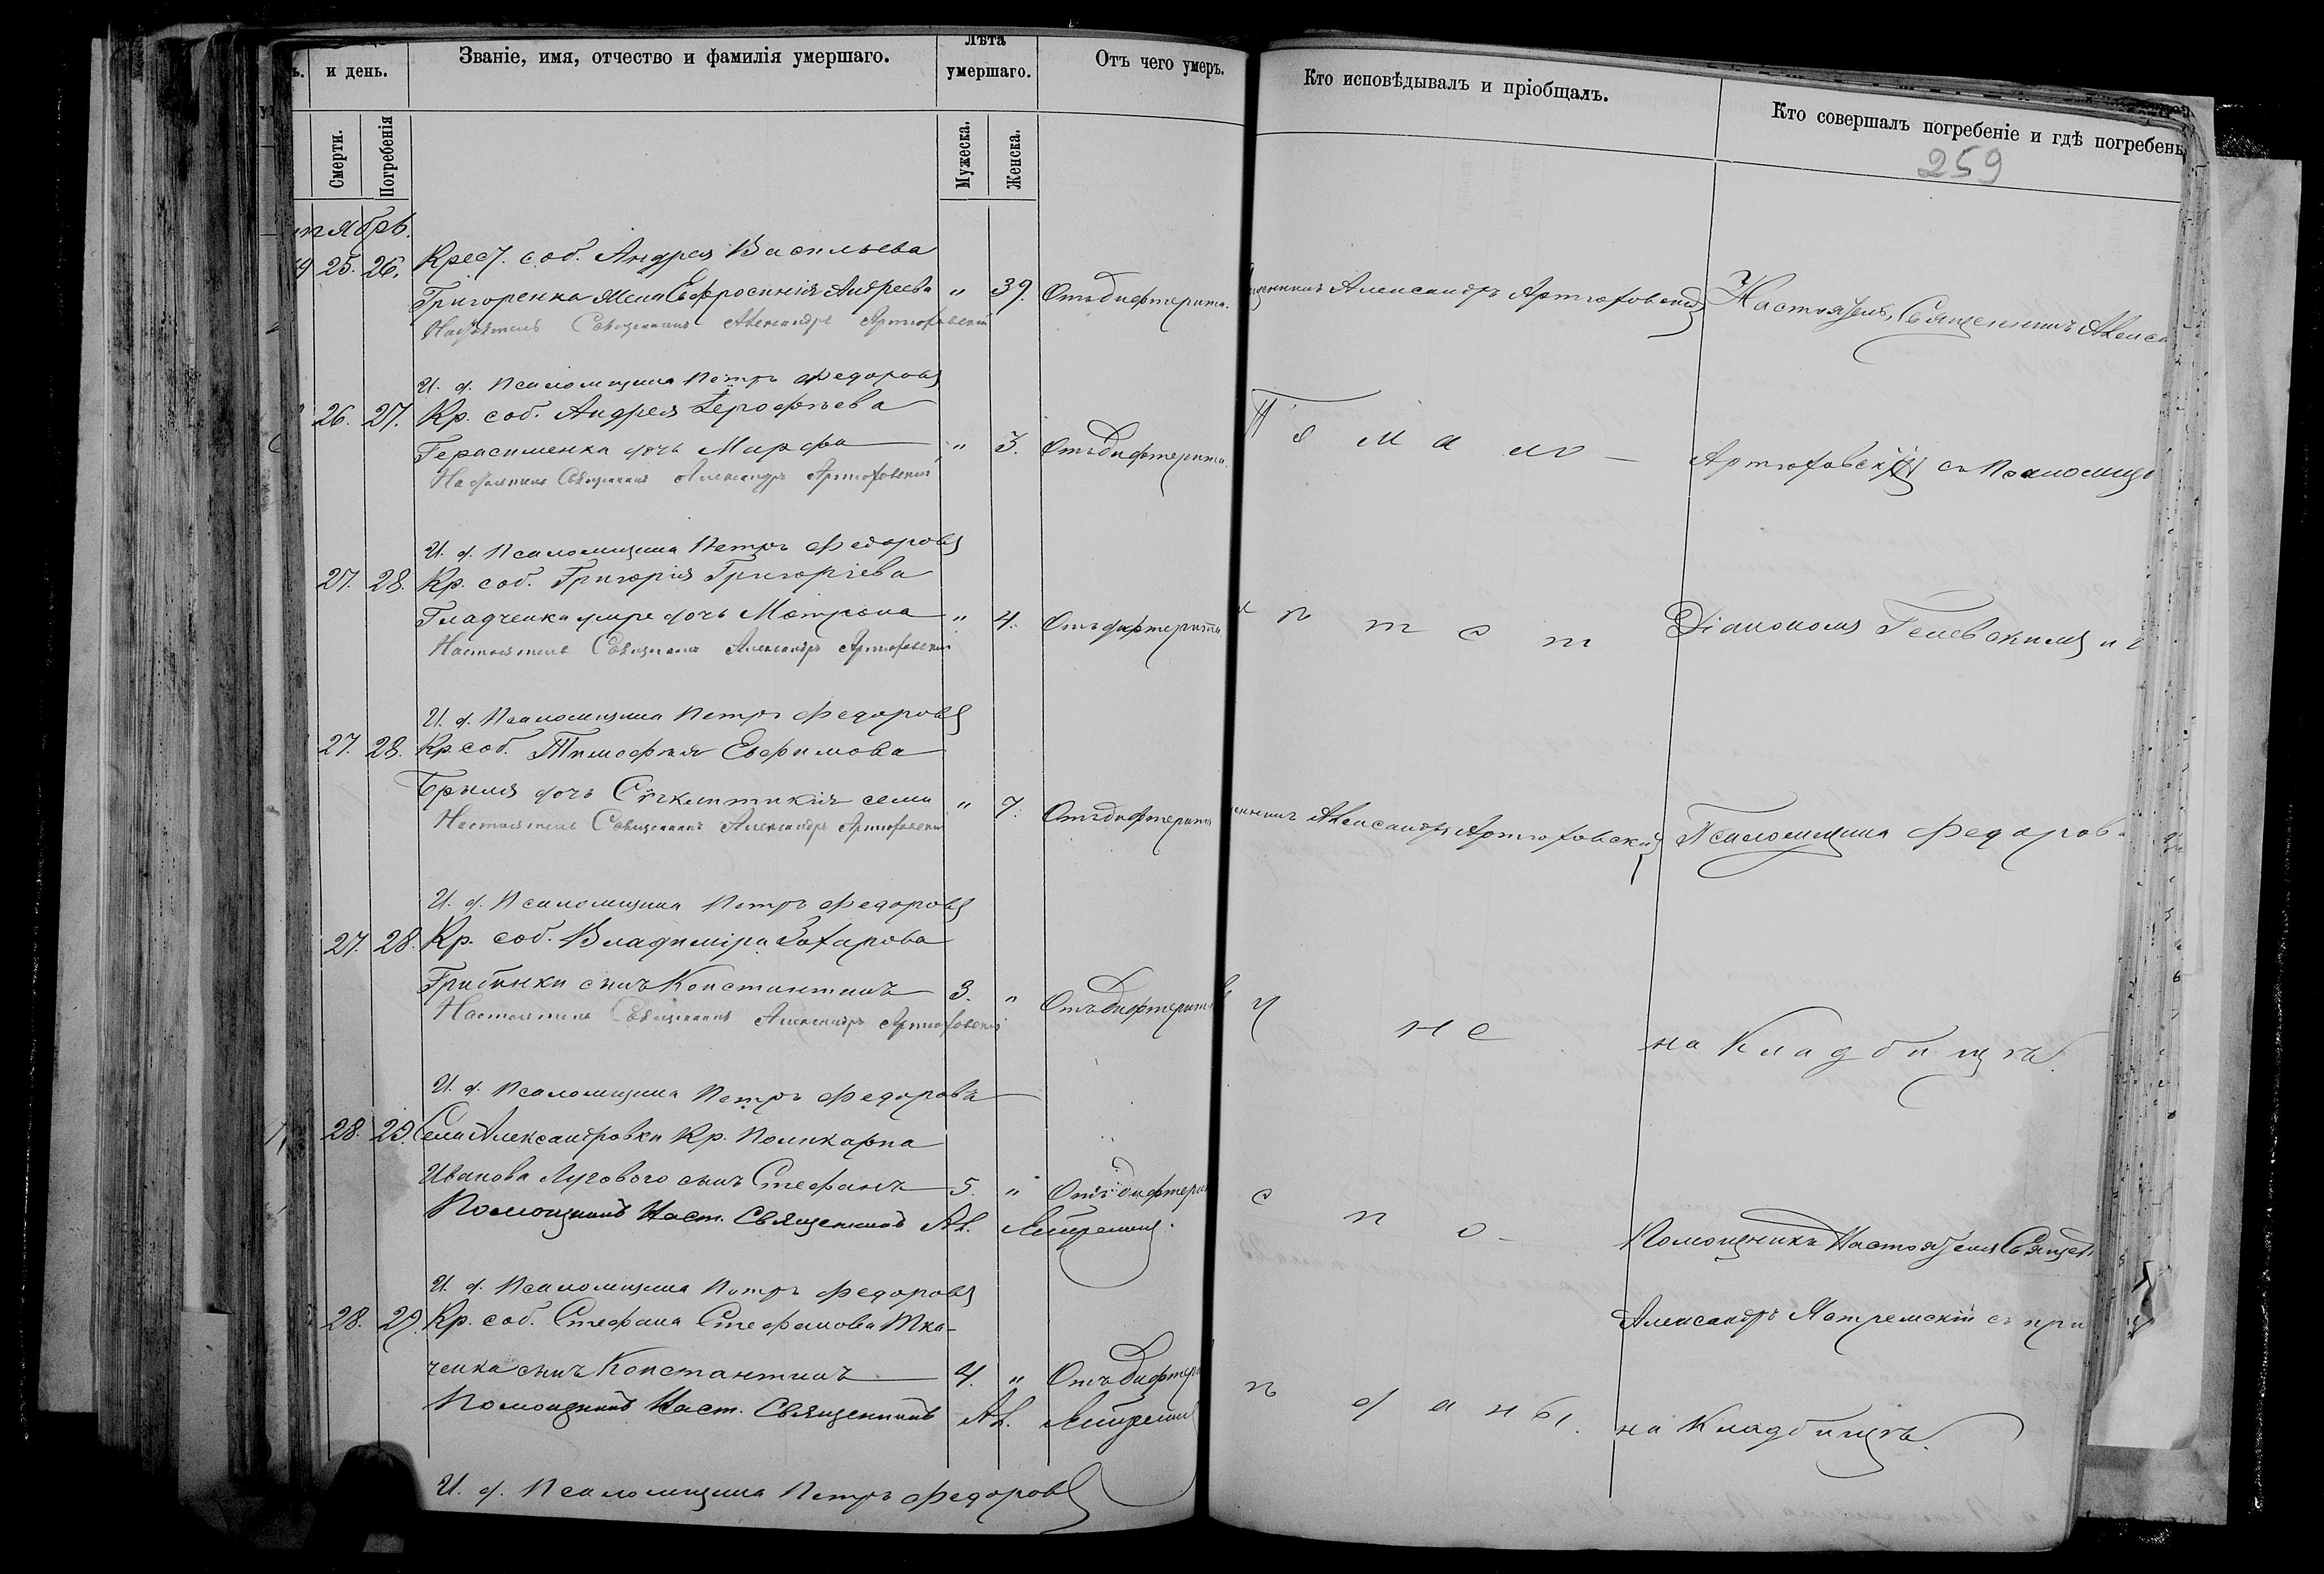 и день.
Званіе, имя, отчество и фамилія умершаго.
Лѣта умершаго.
Отъ чего умеръ.
Кто исповѣдывалъ и пріобщалъ.
Кто совершалъ погребеніе и гдѣ погребенъ
259
Смерти.
Погребенія
Мужеска.
Женска.
тябрь.
25. 26. Крест. соб. Андрея Васильева
Григоренка жена Евфросинія Андреева " 39. Отъ дифтерита.
Настоятель Священникъ Александръ Артюховскій
И. д. Псаломщика Петръ Федоровъ
26. 27. Кр. соб. Андрея Іерофѣева
Герасименка дочь Марфа " 3. Отъ дифтерита.
Настоятель Священникъ Александръ Артюховскій
И. д. Псаломщика Петръ Федоровъ
27. 28. Кр. соб. Григорія Григоріева
Гладченка дочь Матрона " 4. Отъ дифтерита
Настоятель Священникъ Александръ Артюховскій
И. д. Псаломщика Петръ Федоровъ
27. 28. Кр. соб. Тимофея Евфимова
дочь " 7. Отъ дифтерита
Настоятель Священникъ Александръ Артюховскій
И. д. Псаломщика Петръ Федоровъ
27. 28. Кр. соб. Владиміра Захарова
сынъ Константинъ 3. " Отъ дифтерита
Настоятель Священникъ Александръ Артюховскій
И. д. Псаломщика Петръ Федоровъ
28. 29. Села Александровки Кр. Поликарпа
Иванова Лугового сынъ Стефанъ 5. " Отъ дифтери
Помощникъ Наст. Священникъ Ал. Ястремскій
И. д. Псаломщика Петръ Федоровъ
28. 29. Кр. соб. Стефана Стефанова Тка-
ченка сынъ Константинъ 4. " Отъ дифтери
Помощникъ Наст. Священникъ Ал. Ястремскій
И. д. Псаломщика Петръ Федоровъ
щенникъ Александръ Артюховскій
По мало-
л ѣ т с т
енникъ Александръ Артюховскій
у не
с п о-
в ѣ д а н ы.
Настоятель, Священникъ Алекса
Артюховскій съ Псаломщи
Діакономъ Геневскимъ и
Псаломщика Федоров
на Кладбищѣ.
Помощникъ Настоятеля Священ
Александръ Ястремскій съ при
на Кладбищѣ.